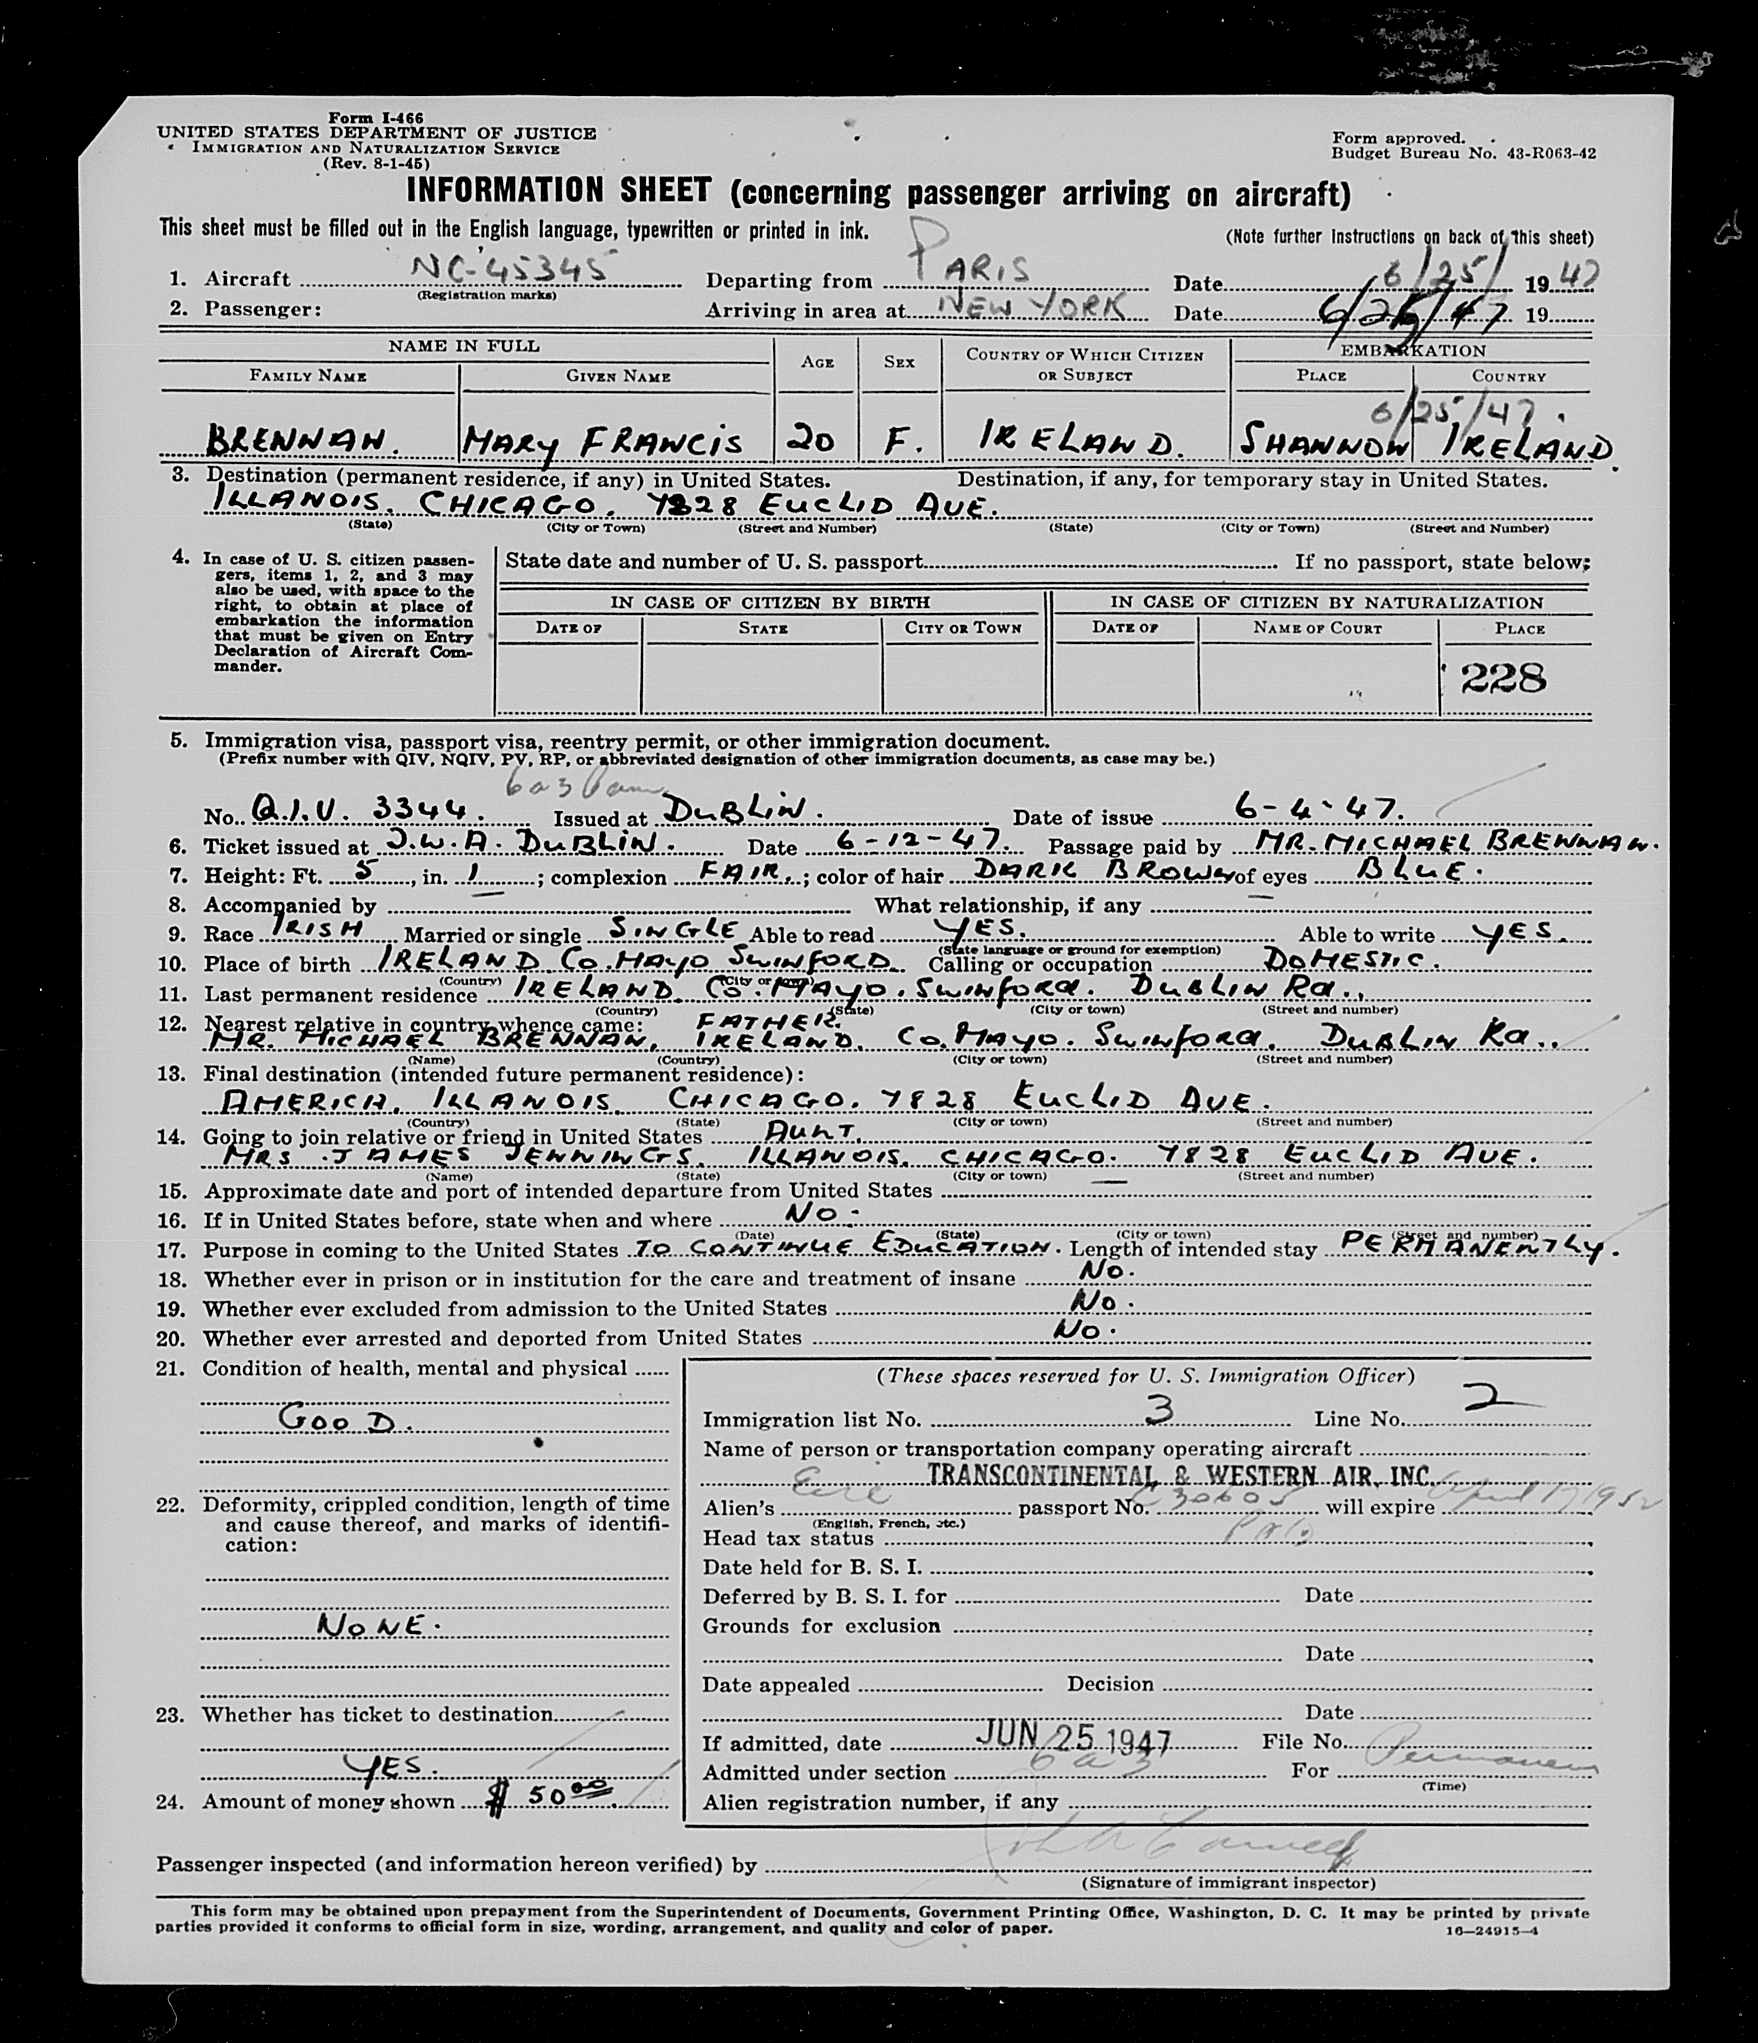 Form I-466
UNITED STATES DEPARTMENT OF JUSTICE
IMMIGRATION AND NATURALIZATION SERVICE
(Rev. 8-1-45)
Form approved.
Budget Bureau No. 43-R063-42
INFORMATION SHEET (concerning passenger arriving on aircraft)
This sheet must be filled out in the English language, typewritten or printed in ink.
(Note further instructions on back of this sheet)
1. Aircraft NC-45345 Departing from PARIS Date 6/25/ 1947
(Registration marks)
2. Passenger: Arriving in area at NEW YORK Date 6/25/47 19
NAME IN FULL AGE SEX COUNTRY OF WHICH CITIZEN OR SUBJECT EMBARKATION
FAMILY NAME GIVEN NAME PLACE COUNTRY
6/25/47.
BRENNAN. MARY FRANCIS 20 F. IRELAND. SHANNON IRELAND.
3. Destination (permanent residence, if any) in United States. Destination, if any, for temporary stay in United States.
ILLANOIS. CHICAGO. 7828 EUCLID AVE.
(State) (City or Town) (Street and Number) (State) (City or Town) (Street and Number)
4. In case of U. S. citizen passen-
gers, items 1, 2, and 3 may
also be used, with space to the
right, to obtain at place of
embarkation the information
that must be given on Entry
Declaration of Aircraft Com-
mander.
State date and number of U. S. passport If no passport, state below:
IN CASE OF CITIZEN BY BIRTH IN CASE OF CITIZEN BY NATURALIZATION
DATE OF STATE CITY OR TOWN DATE OF NAME OF COURT PLACE
228
5. Immigration visa, passport visa, reentry permit, or other immigration document.
(Prefix number with QIV, NQIV, PV, RP, or abbreviated designation of other immigration documents, as case may be.)
6a3
No. Q.I.V. 3344. Issued at DUBLIN. Date of issue 6-4-47.
6. Ticket issued at T.W.A. DUBLIN. Date 6-12-47. Passage paid by MR. MICHAEL BRENNAN.
7. Height: Ft. 5, in. 1; complexion FAIR.; color of hair DARK BROWN of eyes BLUE.
8. Accompanied by — What relationship, if any —
9. Race IRISH Married or single SINGLE Able to read YES. Able to write YES.
(State language or ground for exemption)
10. Place of birth IRELAND. CO. MAYO SWINFORD. Calling or occupation DOMESTIC.
(Country) (City or town)
11. Last permanent residence IRELAND. CO. MAYO. SWINFORD. DUBLIN RD.,
(Country) (State) (City or town) (Street and number)
12. Nearest relative in country whence came: FATHER.
MR. MICHAEL BRENNAN. IRELAND. CO. MAYO. SWINFORD. DUBLIN RD..
(Name) (Country) (City or town) (Street and number)
13. Final destination (intended future permanent residence):
AMERICA. ILLANOIS. CHICAGO. 7828 EUCLID AVE.
(Country) (State) (City or town) (Street and number)
14. Going to join relative or friend in United States AUNT.
MRS JAMES JENNINGS. ILLANOIS. CHICAGO. 7828 EUCLID AVE.
(Name) (State) (City or town) (Street and number)
15. Approximate date and port of intended departure from United States —
16. If in United States before, state when and where NO.
(Date) (State) (City or town) (Street and number)
17. Purpose in coming to the United States TO CONTINUE EDUCATION. Length of intended stay PERMANENTLY.
18. Whether ever in prison or in institution for the care and treatment of insane NO.
19. Whether ever excluded from admission to the United States NO.
20. Whether ever arrested and deported from United States NO.
21. Condition of health, mental and physical
GOOD.
22. Deformity, crippled condition, length of time
and cause thereof, and marks of identifi-
cation:
NONE.
23. Whether has ticket to destination
YES.
24. Amount of money shown $ 50.00
(These spaces reserved for U. S. Immigration Officer)
Immigration list No. 3 Line No. 2
Name of person or transportation company operating aircraft
TRANSCONTINENTAL & WESTERN AIR, INC.
Alien's Eire passport No. C30605 will expire April 17 1952
(English, French, etc.)
Head tax status Paid
Date held for B. S. I.
Deferred by B. S. I. for Date
Grounds for exclusion
Date
Date appealed Decision
Date
If admitted, date JUN 25 1947 File No.
Admitted under section 6a3 For Permanent
(Time)
Alien registration number, if any
Passenger inspected (and information hereon verified) by
(Signature of immigrant inspector)
This form may be obtained upon prepayment from the Superintendent of Documents, Government Printing Office, Washington, D. C. It may be printed by private
parties provided it conforms to official form in size, wording, arrangement, and quality and color of paper.
16—24915-4